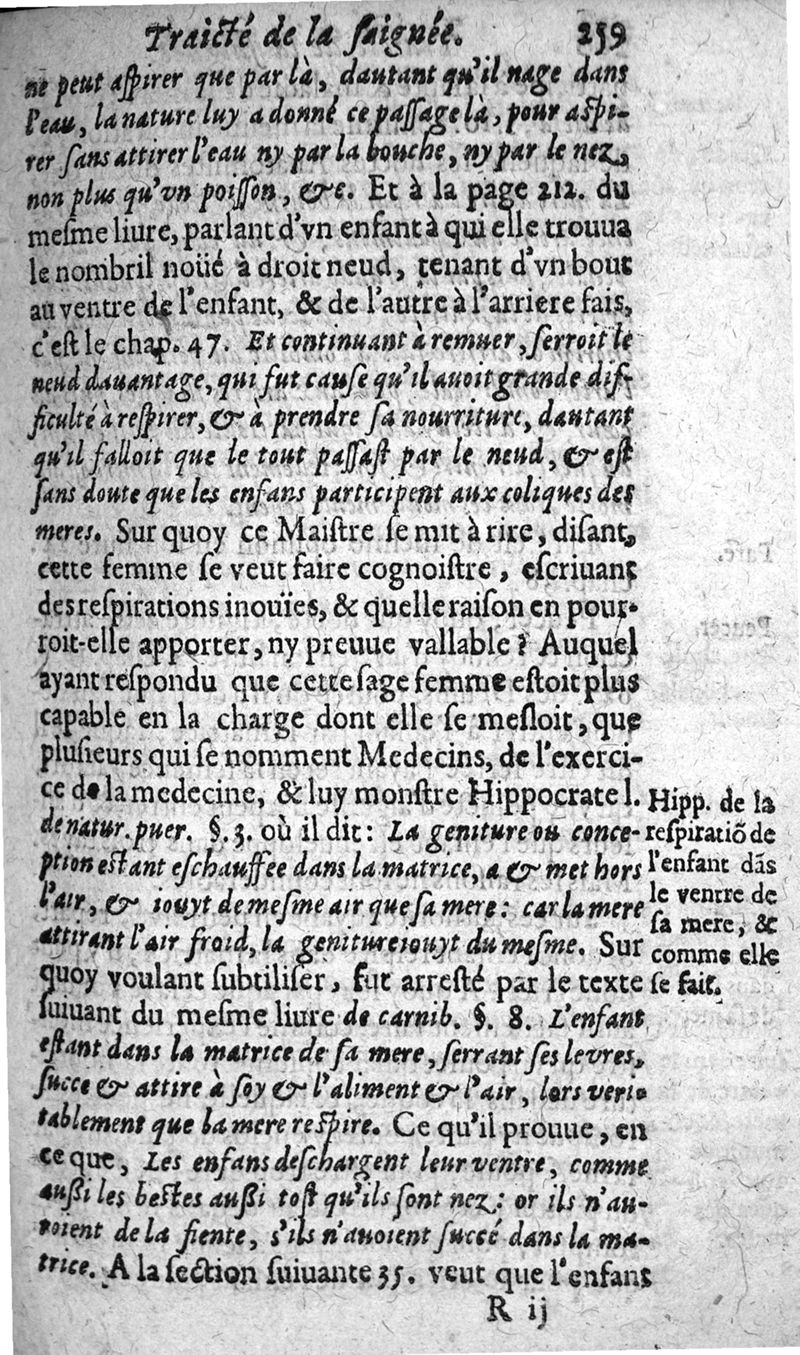 Traicté de la ſaignée. 259
ne peut aſpirer que par là, dautant qu'il nage dans
l'eau, la nature luy a donné ce paſſage là, pour aſpi-
rer ſans attirer l'eau ny par la bouche, ny par le nez,
non plus qu'vn poiſſon, &c. Et à la page 212. du
meſme liure, parlant d'vn enfant à qui elle trouua
le nombril noüé à droit neud, tenant d'vn bout
au ventre de l'enfant, & de l'autre à l'arriere fais,
c'eſt le chap. 47. Et continuant à remuer, ſerroit le
neud dauantage, qui fut cauſe qu'il auoit grande dif-
ficulté à reſpirer, & à prendre ſa nourriture, dautant
qu'il falloit que le tout paſſaſt par le neud, & eſt
ſans doute que les enfans participent aux coliques des
meres. Sur quoy ce Maiſtre ſe mit à rire, diſant,
cette femme ſe veut faire cognoiſtre, eſcriuant
des reſpirations inouïes, & quelle raiſon en pour-
roit-elle apporter, ny preuue vallable? Auquel
ayant reſpondu que cette ſage femme eſtoit plus
capable en la charge dont elle ſe meſloit, que
pluſieurs qui ſe nomment Medecins, de l'exerci-
ce de la medecine, & luy monſtre Hippocrate l.
de natur. puer. §. 3. où il dit: La geniture ou conce-
ption eſtant eſchauffee dans la matrice, a & met hors
l'air, & iouyt de meſme air que ſa mere: car la mere
attirant l'air froid, la geniture iouyt du meſme. Sur
quoy voulant ſubtiliſer, fut arreſté par le texte
ſuiuant du meſme liure de carnib. §. 8. L'enfant
eſtant dans la matrice de ſa mere, ſerrant ſes levres,
ſucce & attire à ſoy & l'aliment & l'air, lors veri-
tablement que la mere reſpire. Ce qu'il prouue, en
ce que, Les enfans deſchargent leur ventre, comme
auſſi les beſtes auſſi toſt qu'ils ſont nez: or ils n'au-
roient de la fiente, s'ils n'auoient ſuccé dans la ma-
trice. A la ſection ſuiuante 35. veut que l'enfant
R ij
Hipp. de la
reſpiratiõ de
l'enfant dãs
le ventre de
ſa mere, &
comme elle
ſe fait.